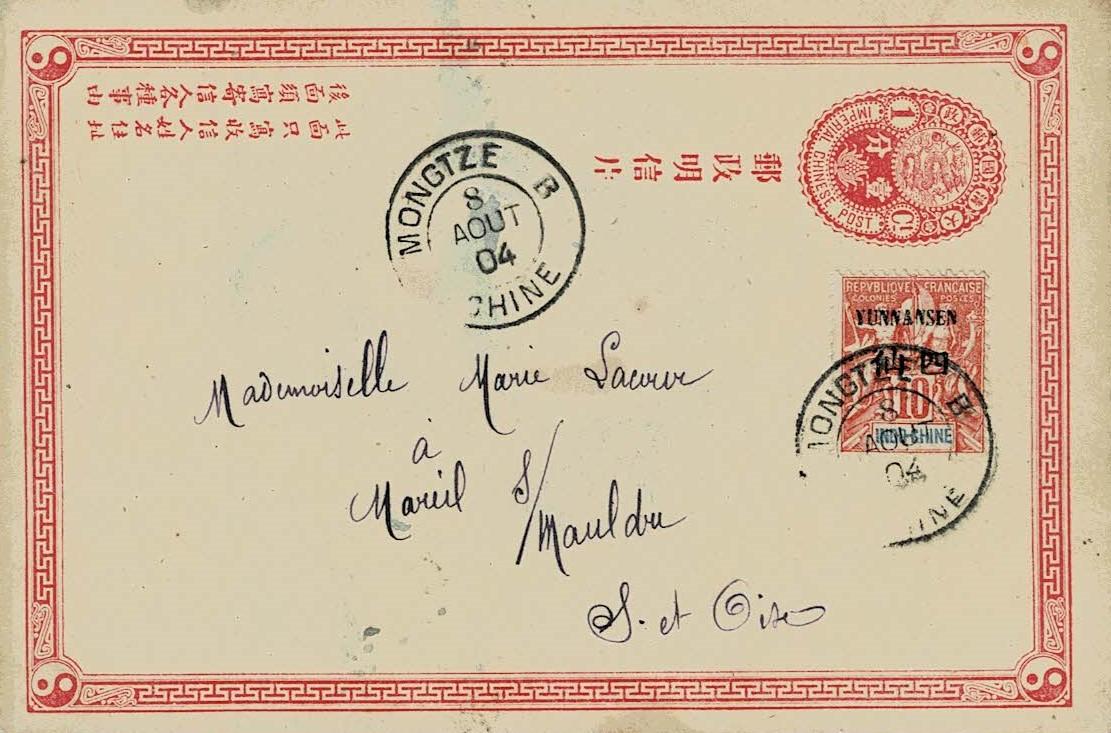 此面只寫收信人姓名住址
後面須寫寄信人各種事由
郵政明信片
大清國郵政
壹分
1 Ct
IMPERIAL CHINESE POST
MONGTZE B
8
AOUT
04
CHINE
REPVBLIQVE FRANÇAISE
COLONIES POSTES
YUNNANSEN
四仙
10
INDO-CHINE
MONGTZE B
8
AOUT
04
CHINE
Mademoiselle Marie Lacour
à
Mareil s/
Mauldre
S. et Oise